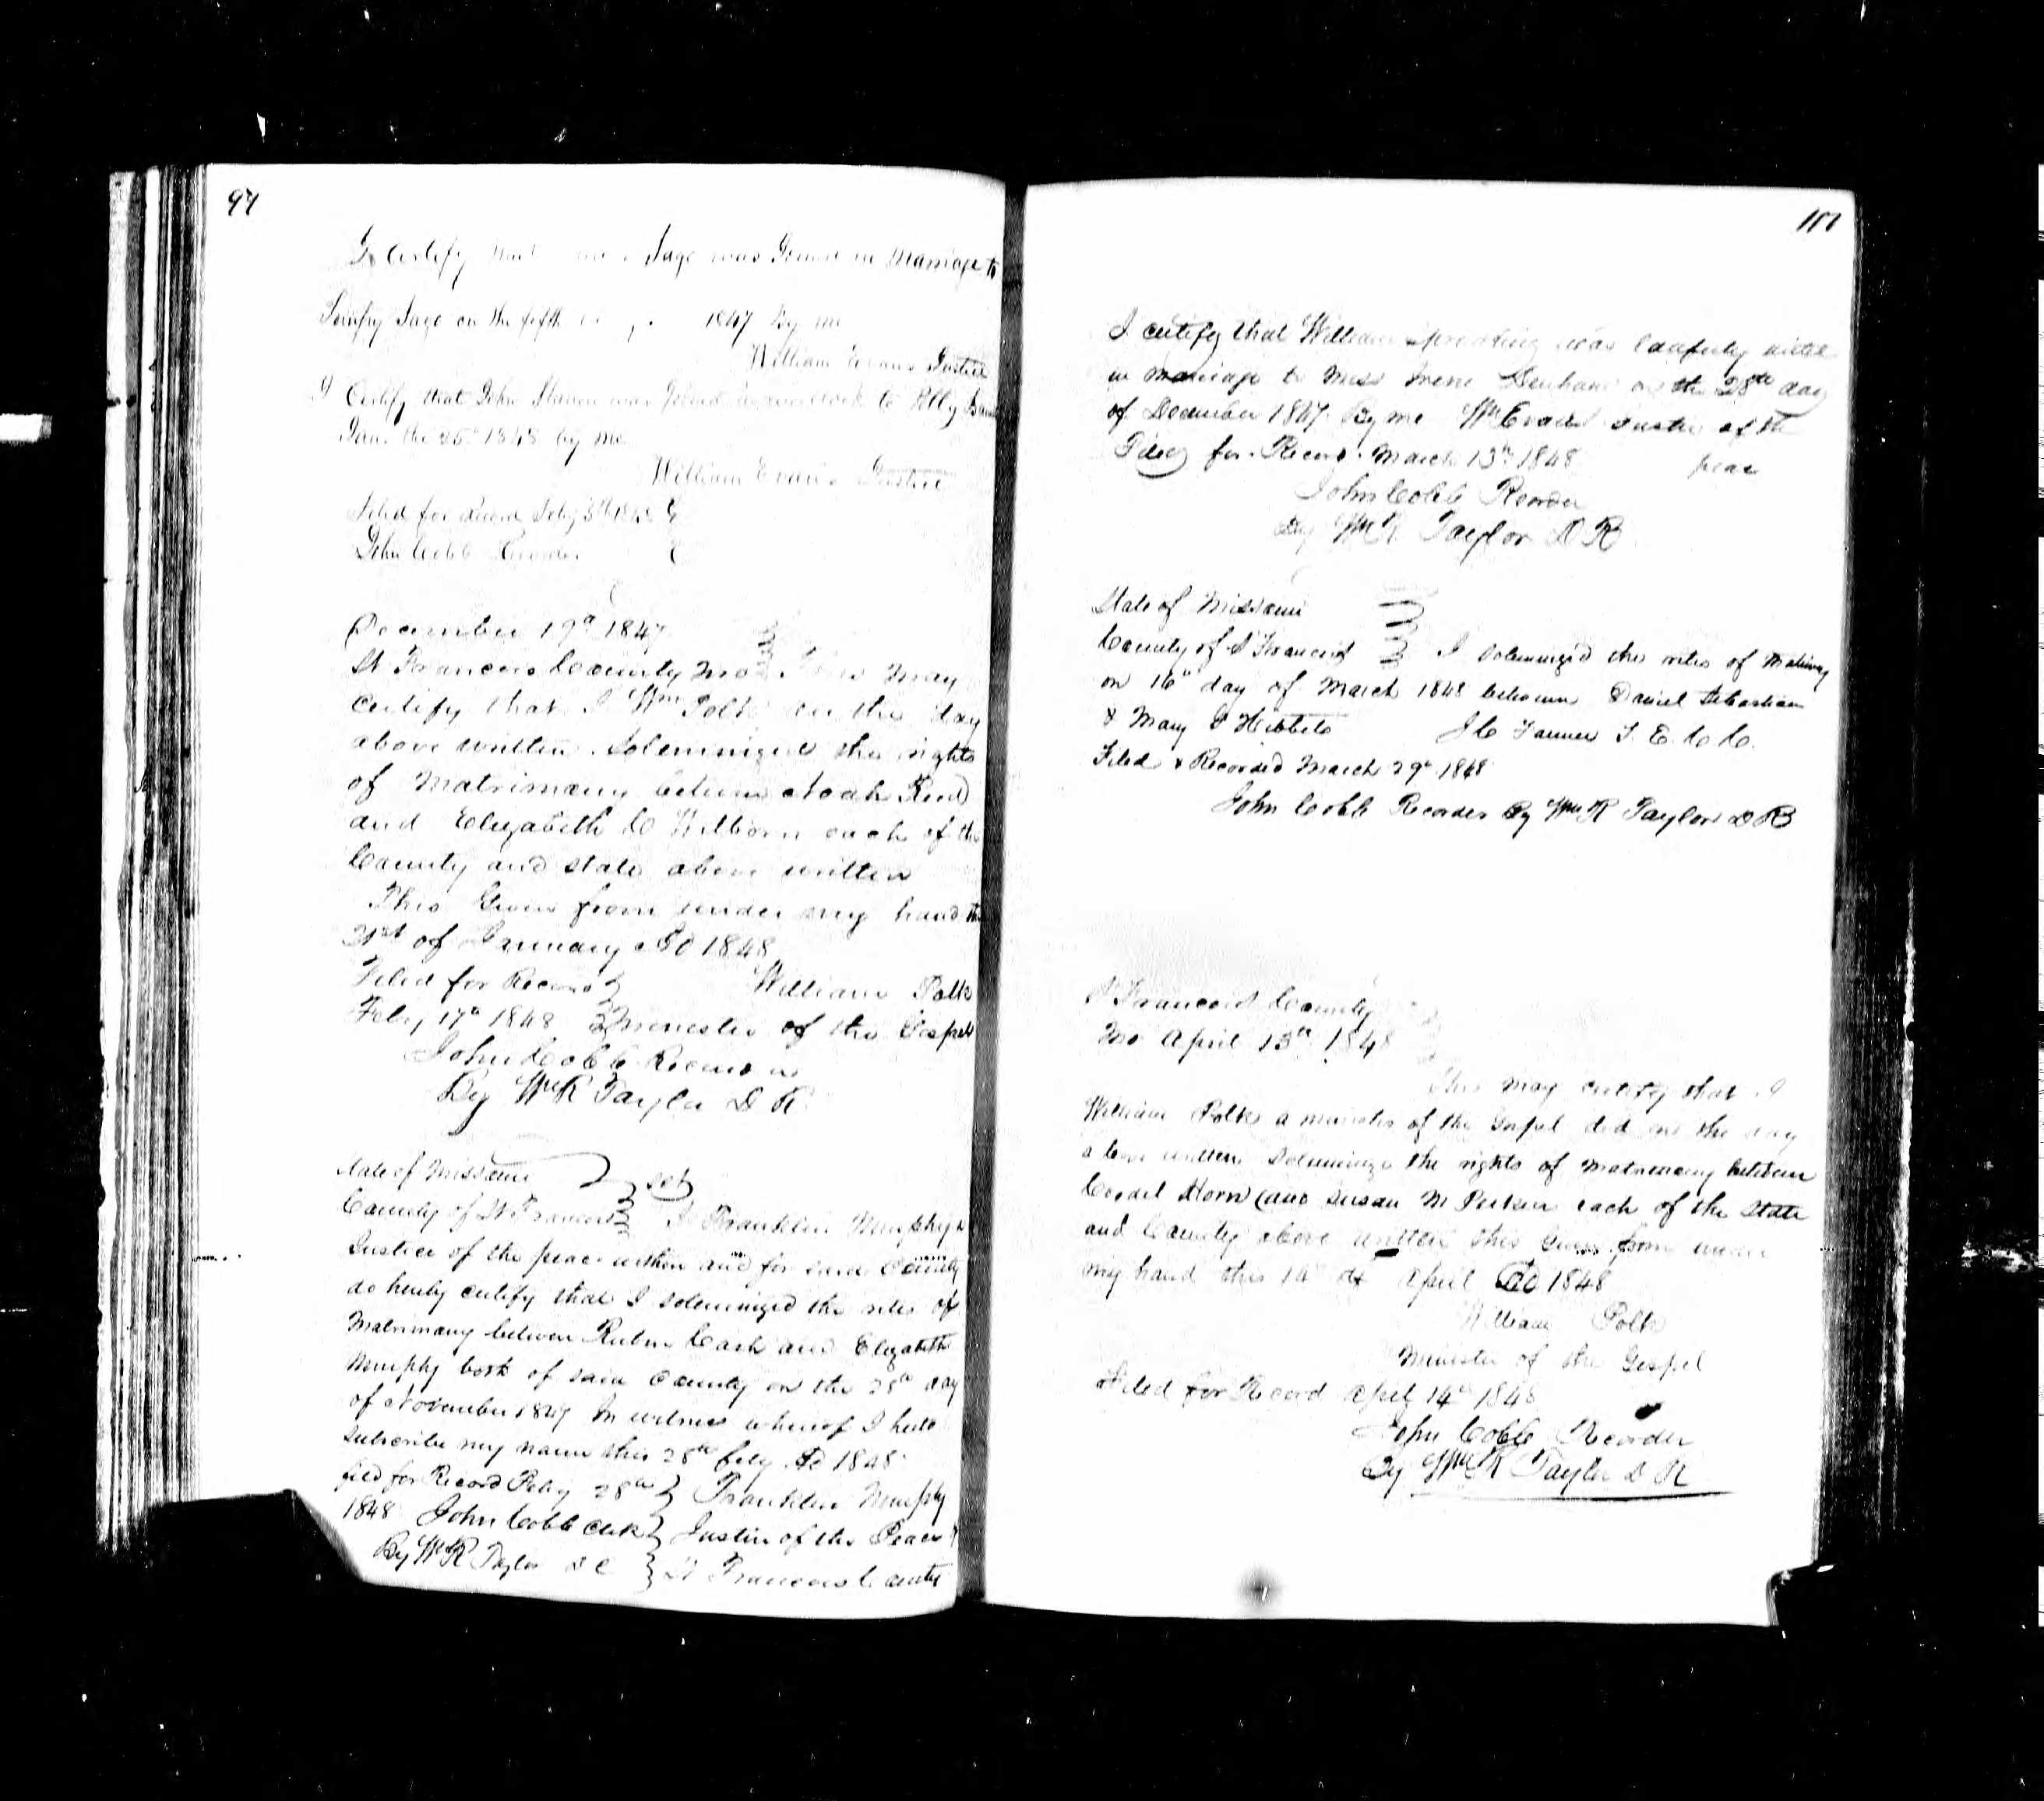 97
I Certify that Sage was Joined in Marriage to
Sage on the fifth 1847 By me
William Evans Justice
I Certify that John was Joined in wedlock to Ally
Jan. the 25th 1848 by me
William Evans Justice
Filed for Record Feby 5th 1848
John Cobb Recorder
December 19th 1847
St Francois County Mo This May
Certify that I Wm Polk on the day
above written Solemnized the rights
of Matrimony between Noah Reed
and Elizabeth C Wilborn each of the
County and state above written
This Given from under my hand the
21st of January AD 1848
Filed for Record William Polk
Feby 17th 1848 Minister of the Gospel
John Cobb Recorder
By Wm R Taylor D R
State of Missouri Sct
County of St Francois I Franklin Murphy a
Justice of the peace within and for said County
do hereby certify that I solemnized the rites of
Matrimony between Ruben Cash and Elizabeth
Murphy both of said County on the 28th day
of November 1847 In witness whereof I hereto
subscribe my name this 28th feby AD 1848
fild for Record Feby 28th Franklin Murphy
1848 John Cobb Clerk Justice of the Peace
By Wm R Taylor D C St Francois County
I certify that William was lawfully
in marriage to Miss Irene Denham on the 28th day
of December 1847 By me Wm Evans Justice of the
Filed for Record March 13th 1848 peace
John Cobb Recorder
By Wm R Taylor D R
State of Missouri
County of St Francois I solemnized the rites of
on 16th day of March 1848 between Daniel Sebastian
& Mary Hibbits J C Farmer T. E. C. C.
Filed & Recorded March 29th 1848
John Cobb Recorder By Wm R Taylor D R
St Francois County
Mo April 13th 1848
This may certify that I
William Polk a minister of the Gospel did on the day
above written Solemnize the rights of Matrimony between
Horn and Susan M each of the State
and County above written this Given from under
my hand this 14th of April AD 1848
William Polk
Minister of the Gospel
Filed for Record April 14th 1848
John Cobb Recorder
By Wm R Taylor D R